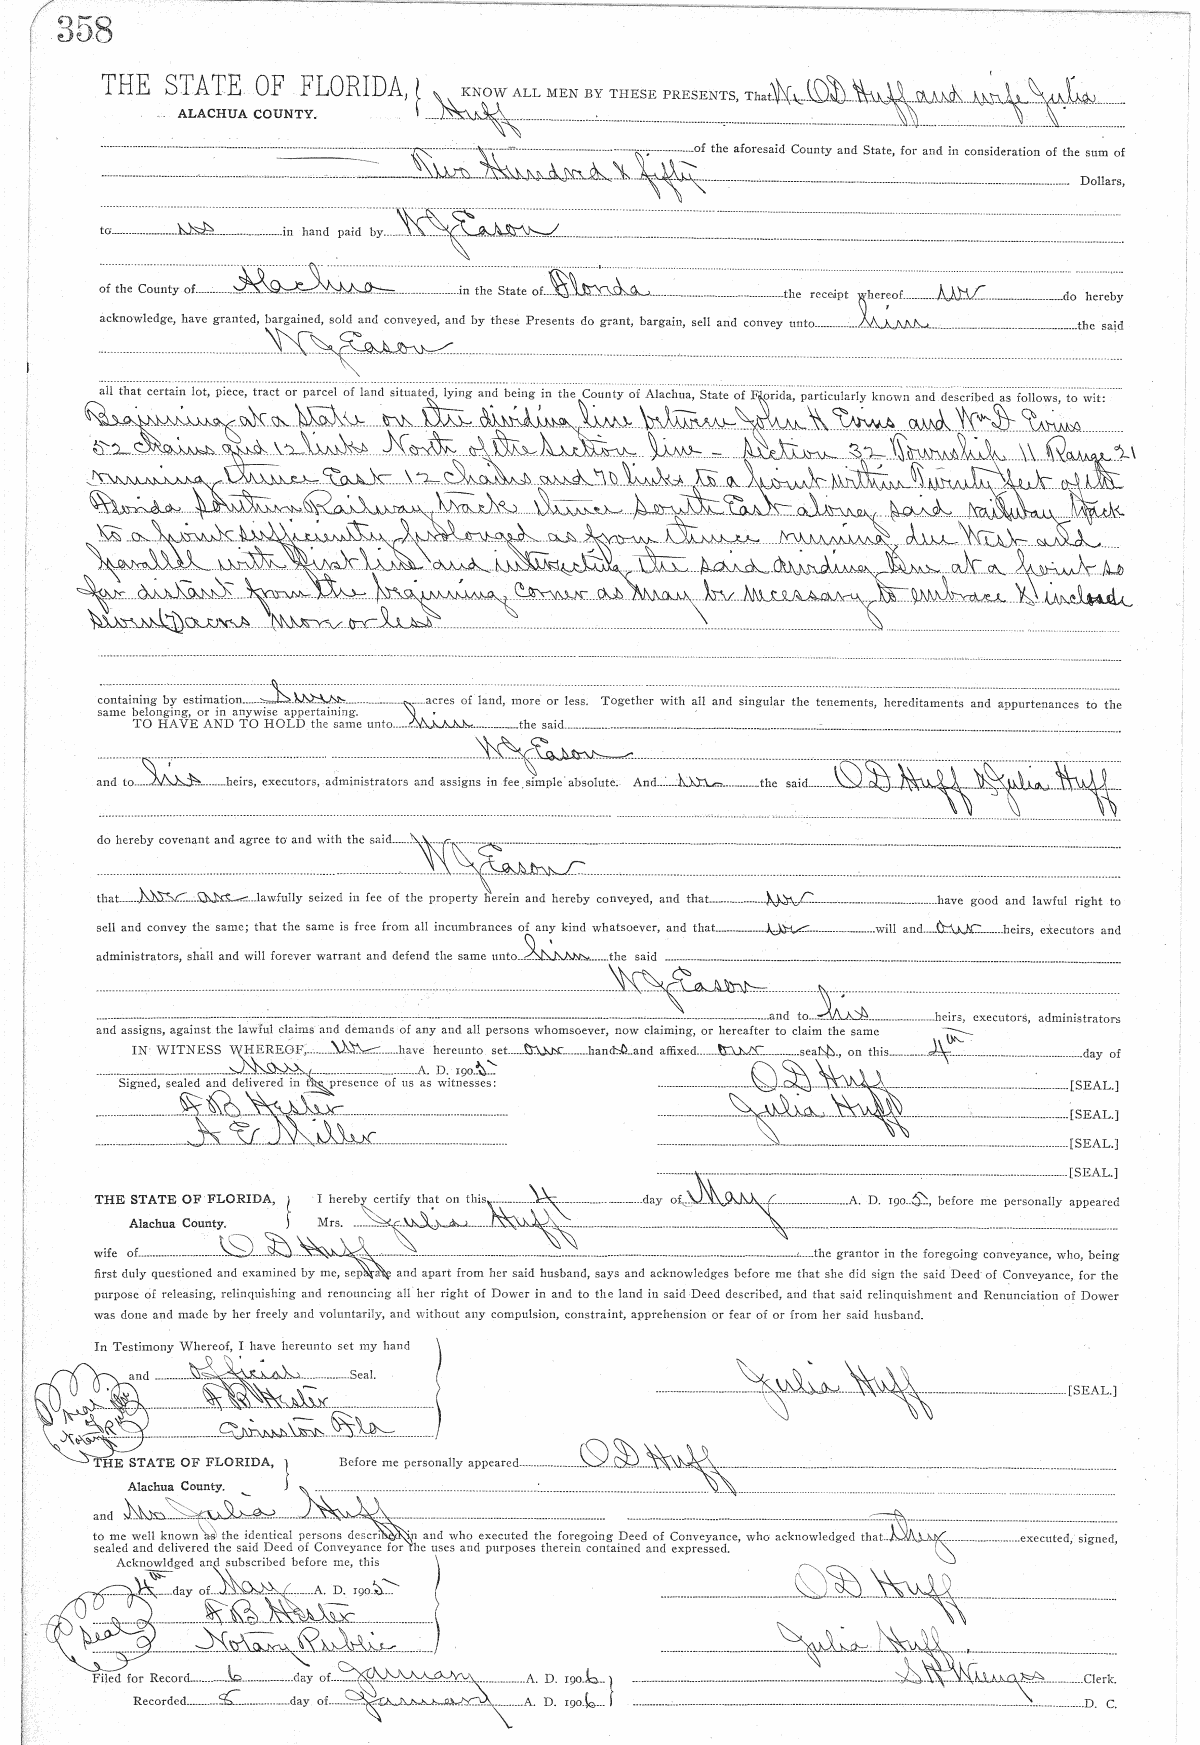 358
THE STATE OF FLORIDA, KNOW ALL MEN BY THESE PRESENTS, That We OD Huff and wife Julia
ALACHUA COUNTY. Huff
of the aforesaid County and State, for and in consideration of the sum of
Two Hundred & fifty Dollars,
to us in hand paid by WJ Eason
of the County of Alachua in the State of Florida the receipt whereof we do hereby
acknowledge, have granted, bargained, sold and conveyed, and by these Presents do grant, bargain, sell and convey unto him the said
WJ Eason
all that certain lot, piece, tract or parcel of land situated, lying and being in the County of Alachua, State of Florida, particularly known and described as follows, to wit:
Beginning at a stake on the dividing line between John H Evins and Wm D Evins
52 chains and 12 links North of the Section line – Section 32 Township 11 Range 21
running thence East 12 chains and 70 links to a point within Twenty feet of the
Florida Southern Railway track thence South East along said railway track
to a point sufficiently prolonged as from thence running due West and
parallel with first line and intersecting the said dividing line at a point so
far distant from the beginning corner as may be necessary to embrace & include
seven (7) acres more or less
containing by estimation Seven acres of land, more or less. Together with all and singular the tenements, hereditaments and appurtenances to the
same belonging, or in anywise appertaining.
TO HAVE AND TO HOLD the same unto him the said
WJ Eason
and to his heirs, executors, administrators and assigns in fee simple absolute. And we the said OD Huff & Julia Huff
do hereby covenant and agree to and with the said
WJ Eason
that we are lawfully seized in fee of the property herein and hereby conveyed, and that we have good and lawful right to
sell and convey the same; that the same is free from all incumbrances of any kind whatsoever, and that we will and our heirs, executors and
administrators, shall and will forever warrant and defend the same unto him the said
WJ Eason
and to his heirs, executors, administrators
and assigns, against the lawful claims and demands of any and all persons whomsoever, now claiming, or hereafter to claim the same
IN WITNESS WHEREOF, we have hereunto set our hands and affixed our seals, on this 4th day of
May A. D. 1905
Signed, sealed and delivered in the presence of us as witnesses: OD Huff [SEAL.]
F B Hester Julia Huff [SEAL.]
A E Miller [SEAL.]
[SEAL.]
THE STATE OF FLORIDA, I hereby certify that on this 4 day of May A. D. 1905, before me personally appeared
Alachua County. Mrs. Julia Huff
wife of O D Huff the grantor in the foregoing conveyance, who, being
first duly questioned and examined by me, separate and apart from her said husband, says and acknowledges before me that she did sign the said Deed of Conveyance, for the
purpose of releasing, relinquishing and renouncing all her right of Dower in and to the land in said Deed described, and that said relinquishment and Renunciation of Dower
was done and made by her freely and voluntarily, and without any compulsion, constraint, apprehension or fear of or from her said husband.
In Testimony Whereof, I have hereunto set my hand
and official Seal. Julia Huff [SEAL.]
F B Hester
Evinston Fla
Seal of Notary Public
THE STATE OF FLORIDA, Before me personally appeared OD Huff
Alachua County.
and Mrs Julia Huff
to me well known as the identical persons described in and who executed the foregoing Deed of Conveyance, who acknowledged that they executed, signed,
sealed and delivered the said Deed of Conveyance for the uses and purposes therein contained and expressed.
Acknowldged and subscribed before me, this
4th day of May A. D. 1905 OD Huff
F B Hester
Seal
Notary Public Julia Huff
Filed for Record 6 day of January A. D. 1906 S H Wienges Clerk.
Recorded 8 day of January A. D. 1906 D. C.